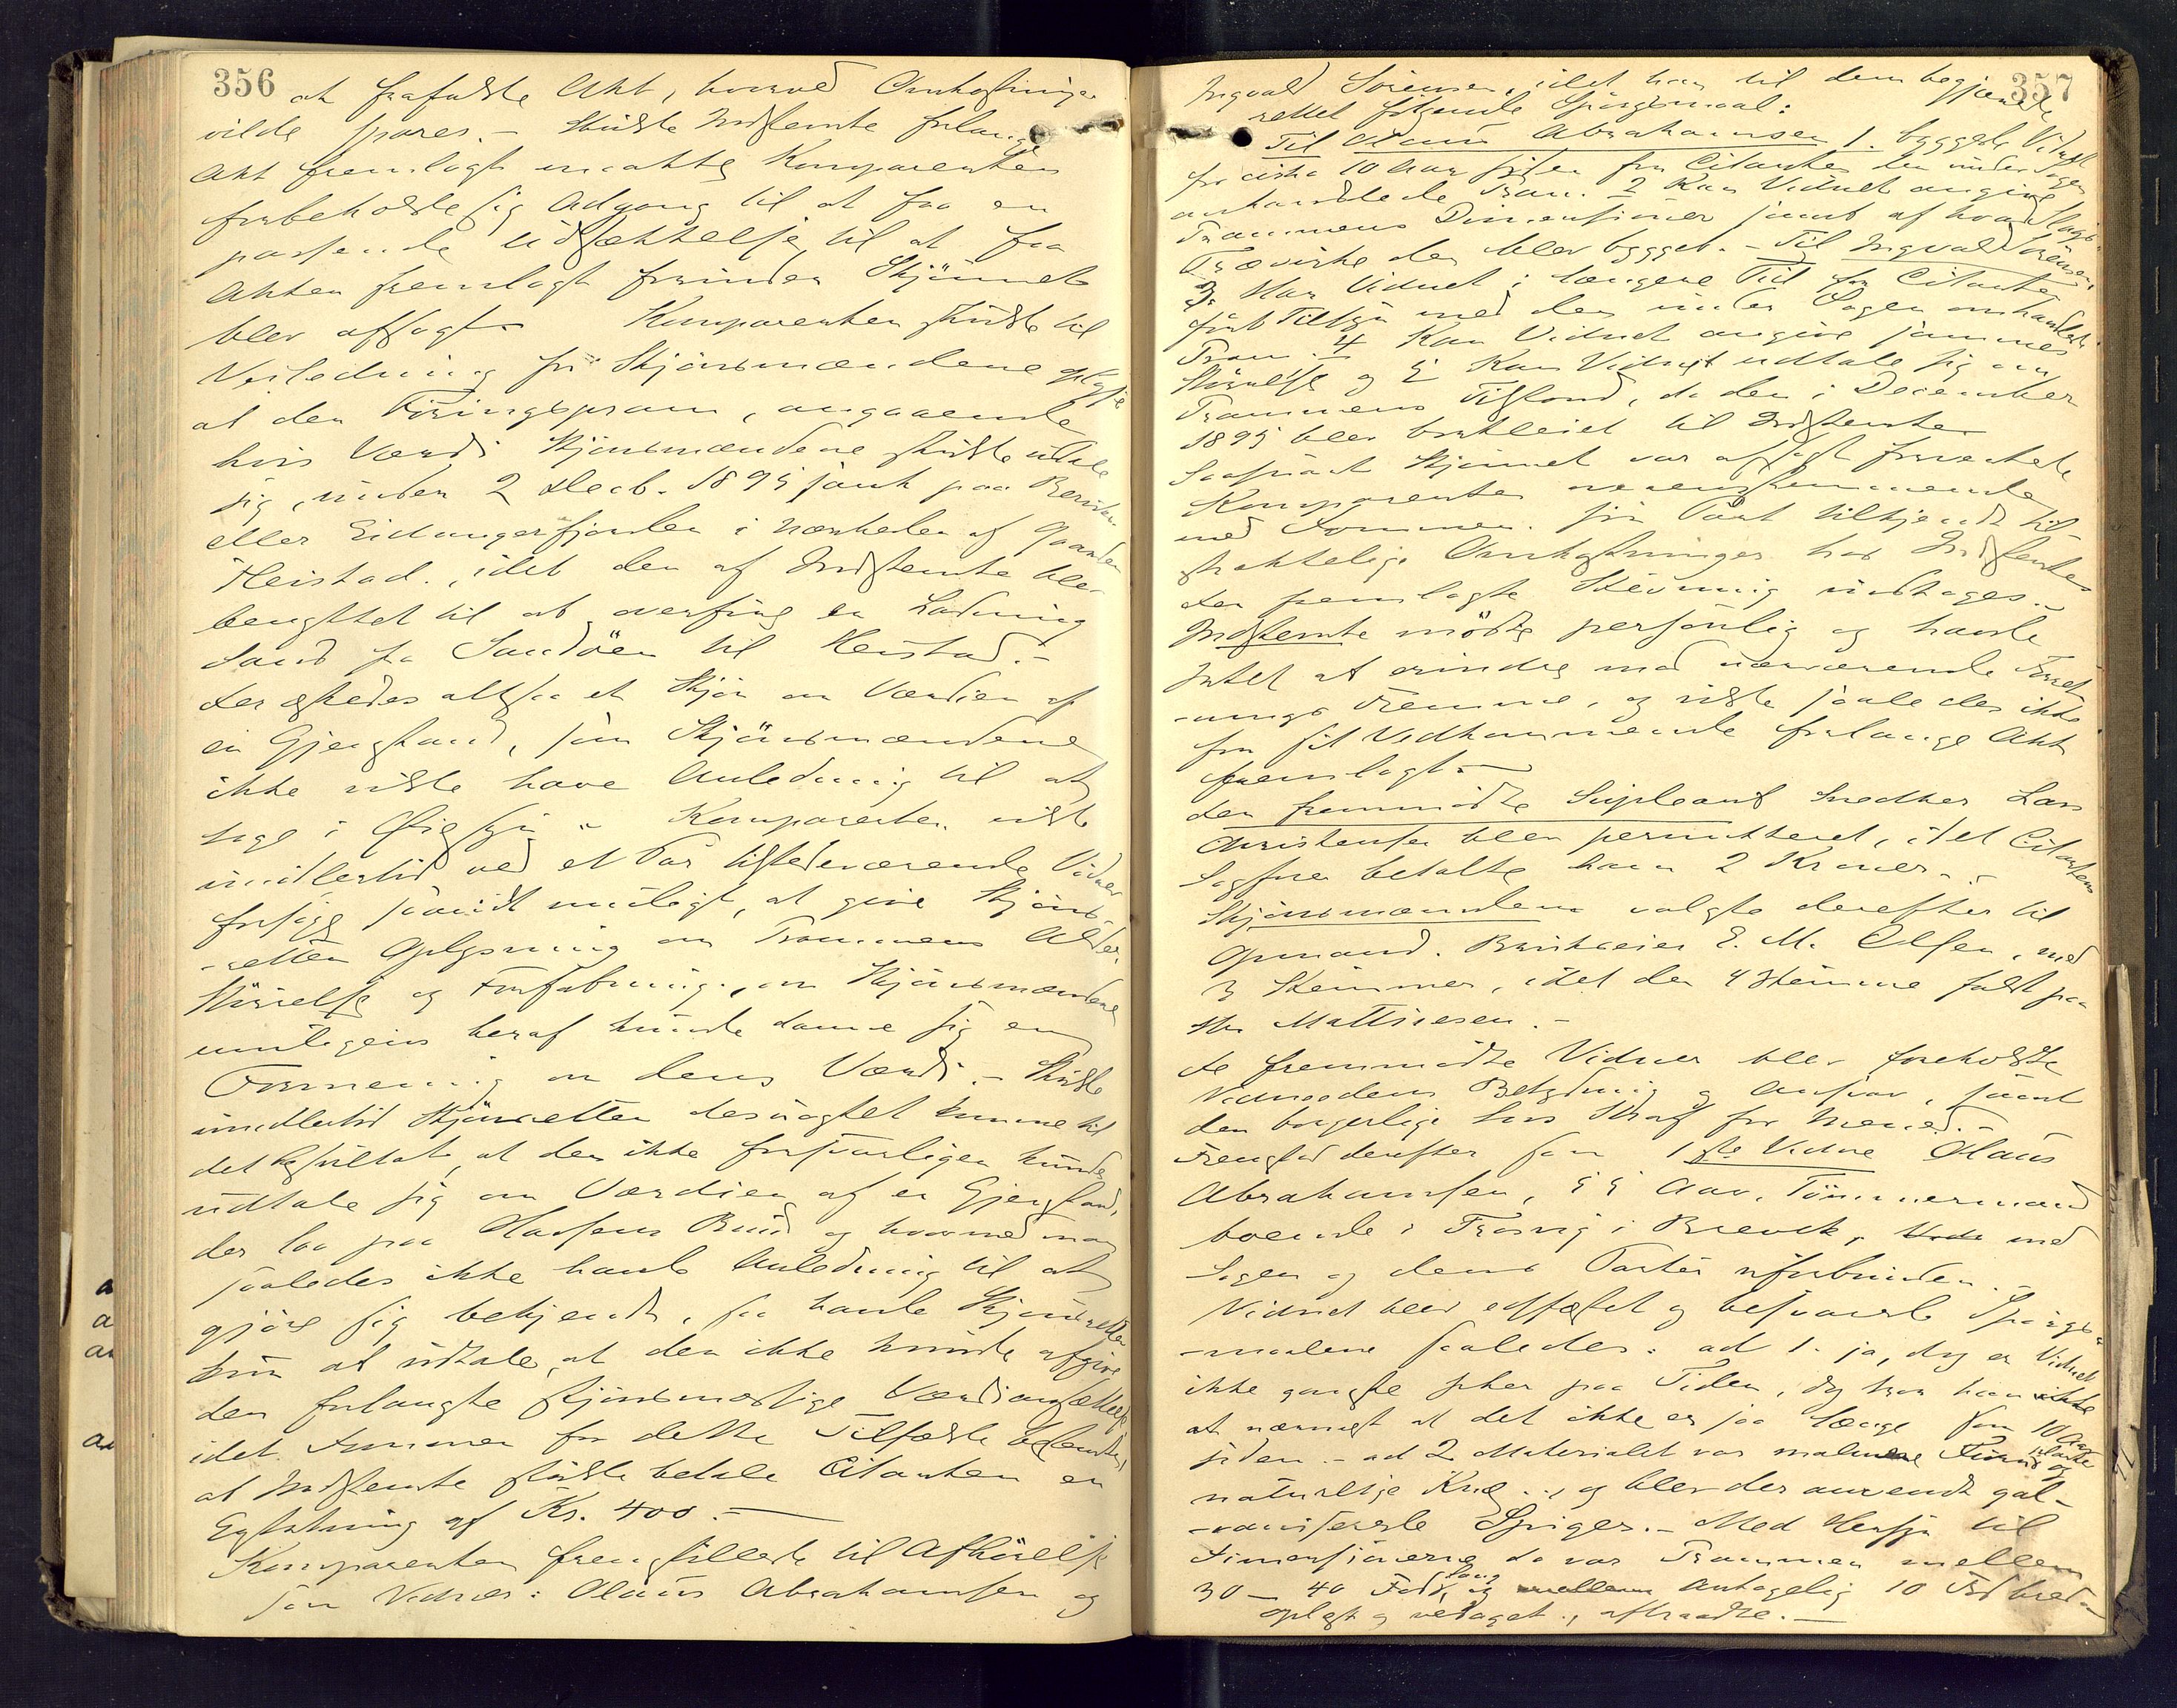 356
at frafalde Akt, hvorved Omkostninger
vilde spares. - Skulde Indstevnte forlange
Akt fremlagt maatte Komparenten
forbeholde sig Adgang til at faa en
passende Udsættelse til at faa
Akten fremlagt forinden Skjønnet
blev afsagt. Komparenten skulde til
Veiledning for Skjønsmændene oplyse
at den Føringspram, angaaende
hvis Værdi Skjønsmændene skulde udtale
sig, under 2 Decb. 1895 sank paa
eller Eidangerfjorden i Nærheden af Gaarden
Heistad, idet den af Indstevnte blev
benyttet til at overføre en Ladning
Sand fra Sandøen til Heistad. -
Der æskedes altsaa et Skjøn om Værdien af
en Gjenstand, som Skjønsmændene
ikke vilde have Anledning til at
tage i Øiesyn. Komparenten vilde
imidlertid ved et Par tilstedeværende Vidner
forsøge saavidt muligt, at give Skjøns-
-retten Oplysning om Prammens Alder,
Størrelse og Forfatning, om Skjønsmændene
muligens heraf kunde danne sig en
Formening om dens Værdi. - Skulde
imidlertid Skjønsretten desuagtet komme til
det Resultat, at den ikke forsvarligen kunde
udtale sig om Værdien af en Gjenstand,
der laa paa Havsens Bund og hvormed man
saaledes ikke havde Anledning til at
gjøre sig bekjendt, saa havde Skjønsretten
kun at udtale, at den ikke kunde afgive
den forlangte skjønsmæssige Værdiansættelse
idet Dommen for dette Tilfælde bestemte,
at Indstevnte skulde betale Citanten en
Erstatning af Kr. 400. -
Komparenten fremstillede til Afhørelse
som Vidner: Olaus Abrahamsen og
357
Ingvald Sørensen, idet han til dem begjærede
rettet følgende Spørgsmaal:
Til Olaus Abrahamsen 1. byggede Vidnet
for cirka 10 Aar siden for Citanten den under Sagen
omhandlede Pram. 2 Kan Vidnet angive
Prammens Dimensioner samt af hvad Slags
Trævirke den blev bygget. - Til Ingvald Sørensen,
3. Har Vidnet i længere Tid for Citanten
ført Tilsyn med den under Sagen omhandlede
Pram. 4 Kan Vidnet angive sammes
Størrelse og 5 Kan Vidnet udtale sig om
Prammens Tilstand, da den i December
1895 blev bortleiet til Indstevnte
Saasnart Skjønnet var afsagt forventede
Komparenten overensstemmende
med Dommen. sin Part tilkjendt til
Omkostninger hos Indstevnte
Den fremlagte Stevning indtages. -
Indstevnte mødte personlig og havde
Intet at erindre mod nærværende Forret-
-nings Fremme, og vilde saaledes ikke
for sit Vedkommende forlange Akt
fremlagt. -
Den fremmødte Supleant Snedker Lars
Christensen blev permitteret, idet Citantens
Sagfører betalte ham 2 Kroner. -
Skjønsmændene valgte derefter til
Opmand. E. M. Olsen, med
3 Stemmer, idet den 4 Stemme faldt paa
Hr Mathiesen. -
De fremmødte Vidner blev foreholdte
Vidneedens Betydning og Ansvar, samt
den borgerlige Lovs Straf for Mened. -
Fremstod derefter som 1ste Vidne Olaus
Abrahamsen, 55 Aar, Tømmermand
boende i Trosvig i Brevik, med
Sagen og dens Parter uforbunden.
Vidnet blev edfæstet og besvarede Spørgs-
-maalene saaledes: ad 1. ja, dog er Vidnet
ikke ganske sikker paa Tiden, dog tror han ikke
at nærmest at det ikke er saa længe som 10 Aar
siden. - ad 2 Materialet var malmene og
naturlige Knæ., og blev der anvendt gal-
-vaniserede Spiger. - Med Hensyn til
Dimensionerne da var Prammen mellem
30 - 40 Fod lang, og mellem antagelig 10 Fod bred -
oplæst og vedtaget., aftraadte. -